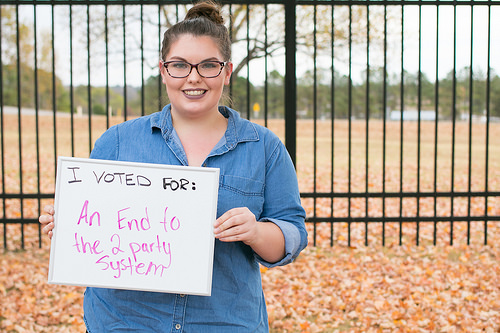 I VOTED FOR:
An End to
the 2 party
System